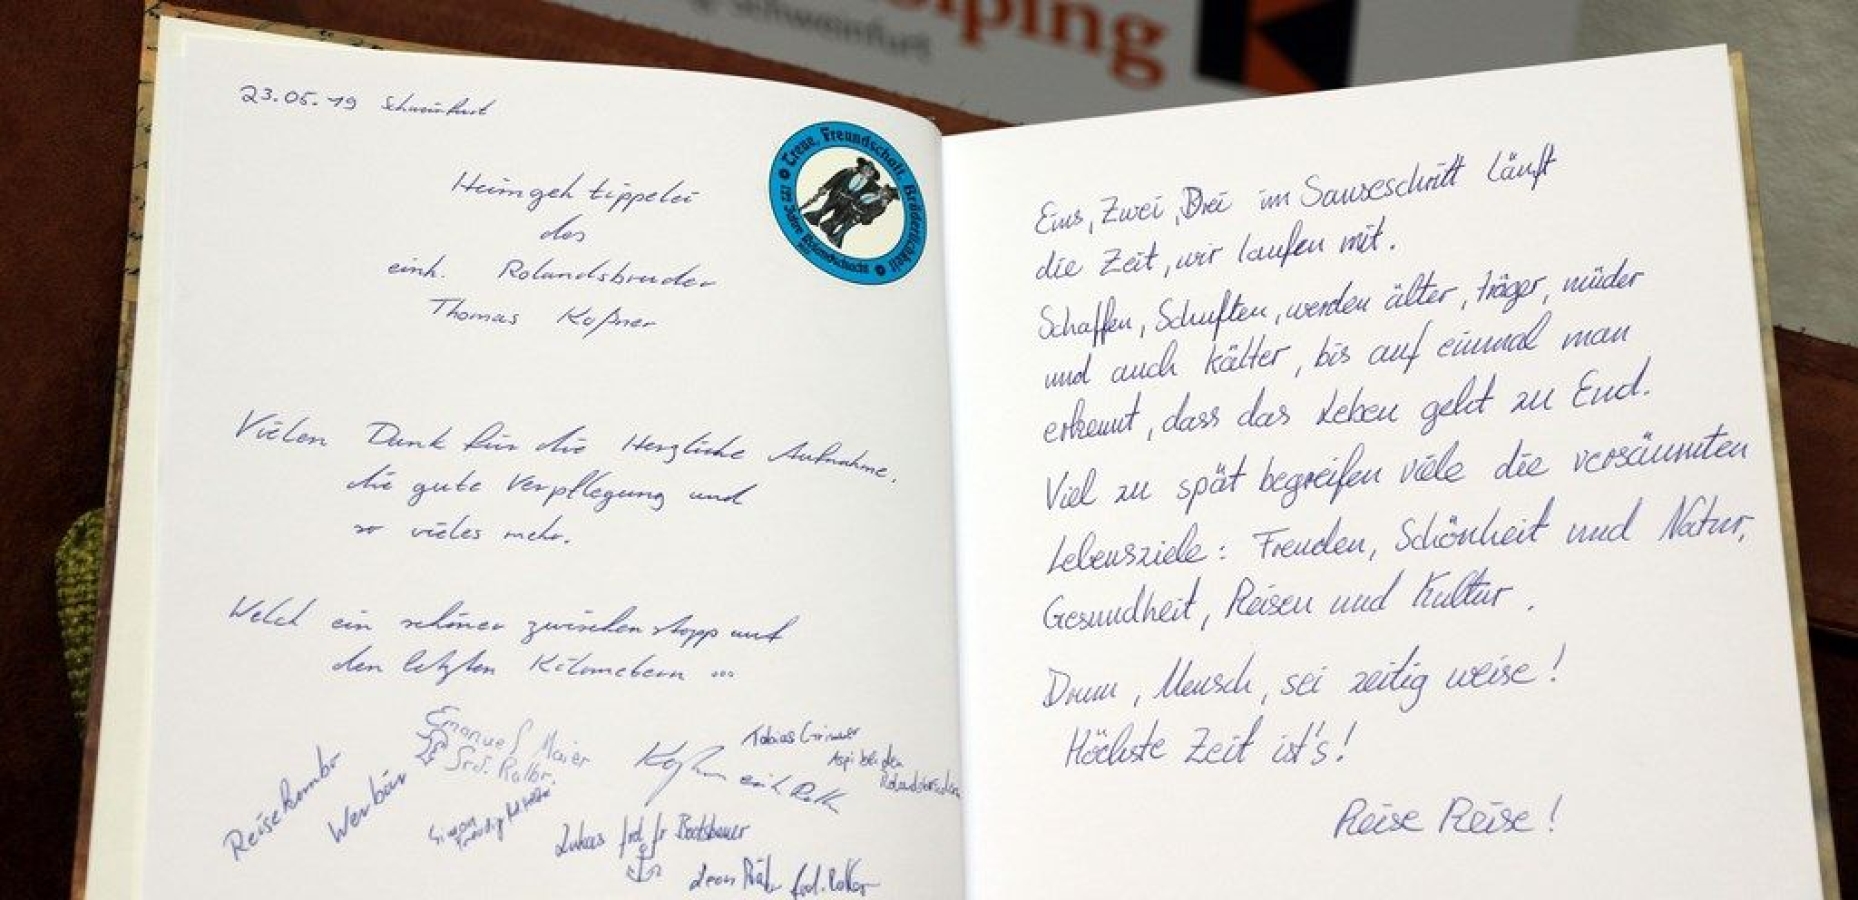 olping
Schweinfurt
23.05.19 Schweinfurt
Treue, Freundschaft, Brüderlichkeit
Jahre Rolandschacht
Heimgeh tippelei
des
einh. Rolandsbruder
Thomas Koßner
Vielen Dank für die Herzliche Aufnahme,
die gute Verpflegung und
so vieles mehr.
Welch ein schöner zwischenstopp auf
den letzten Kilometern ...
Emanuel Maier
Tobias
Aspi bei den
Rolandsbrüdern
Reisekombo
Werbär
Simon
Lukas frd. fr Bootsbauer
Leon frd.
Eins, Zwei, Drei im Sauseschritt Läuft
die Zeit, wir laufen mit.
Schaffen, Schuften, werden älter, träger, müder
und auch kälter, bis auf einmal man
erkennt, dass das Leben geht zu End.
Viel zu spät begreifen viele die versäumten
Lebensziele: Freuden, Schönheit und Natur,
Gesundheit, Reisen und Kultur.
Drum, Mensch, sei zeitig weise!
Höchste Zeit ist's!
Reise Reise!